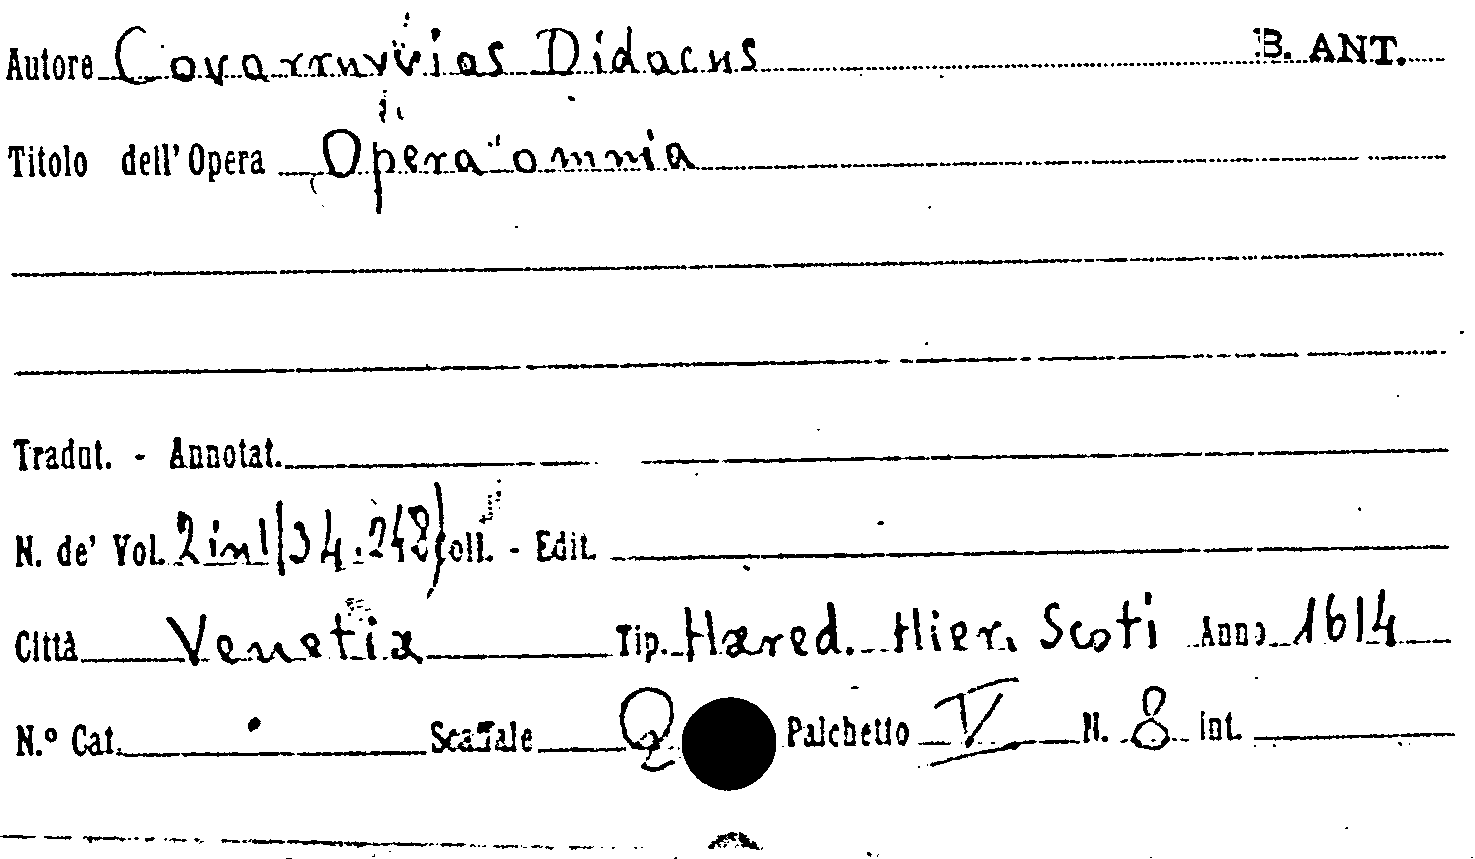 Autore Covarruvias Didacus B. ANT.
Titolo dell' Opera Opera omnia
Tradut. - Annotat.
N. de' Vol. 2 in 1 (34.248) Coll. - Edit.
Città Venetia Tip. Hæred. Hier. Scoti Anno 1614
N.º Cat. Scaffale Q Palchetto V N. 8 int.